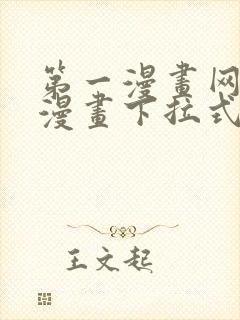 第一漫畫网
漫畫下拉式
王文起